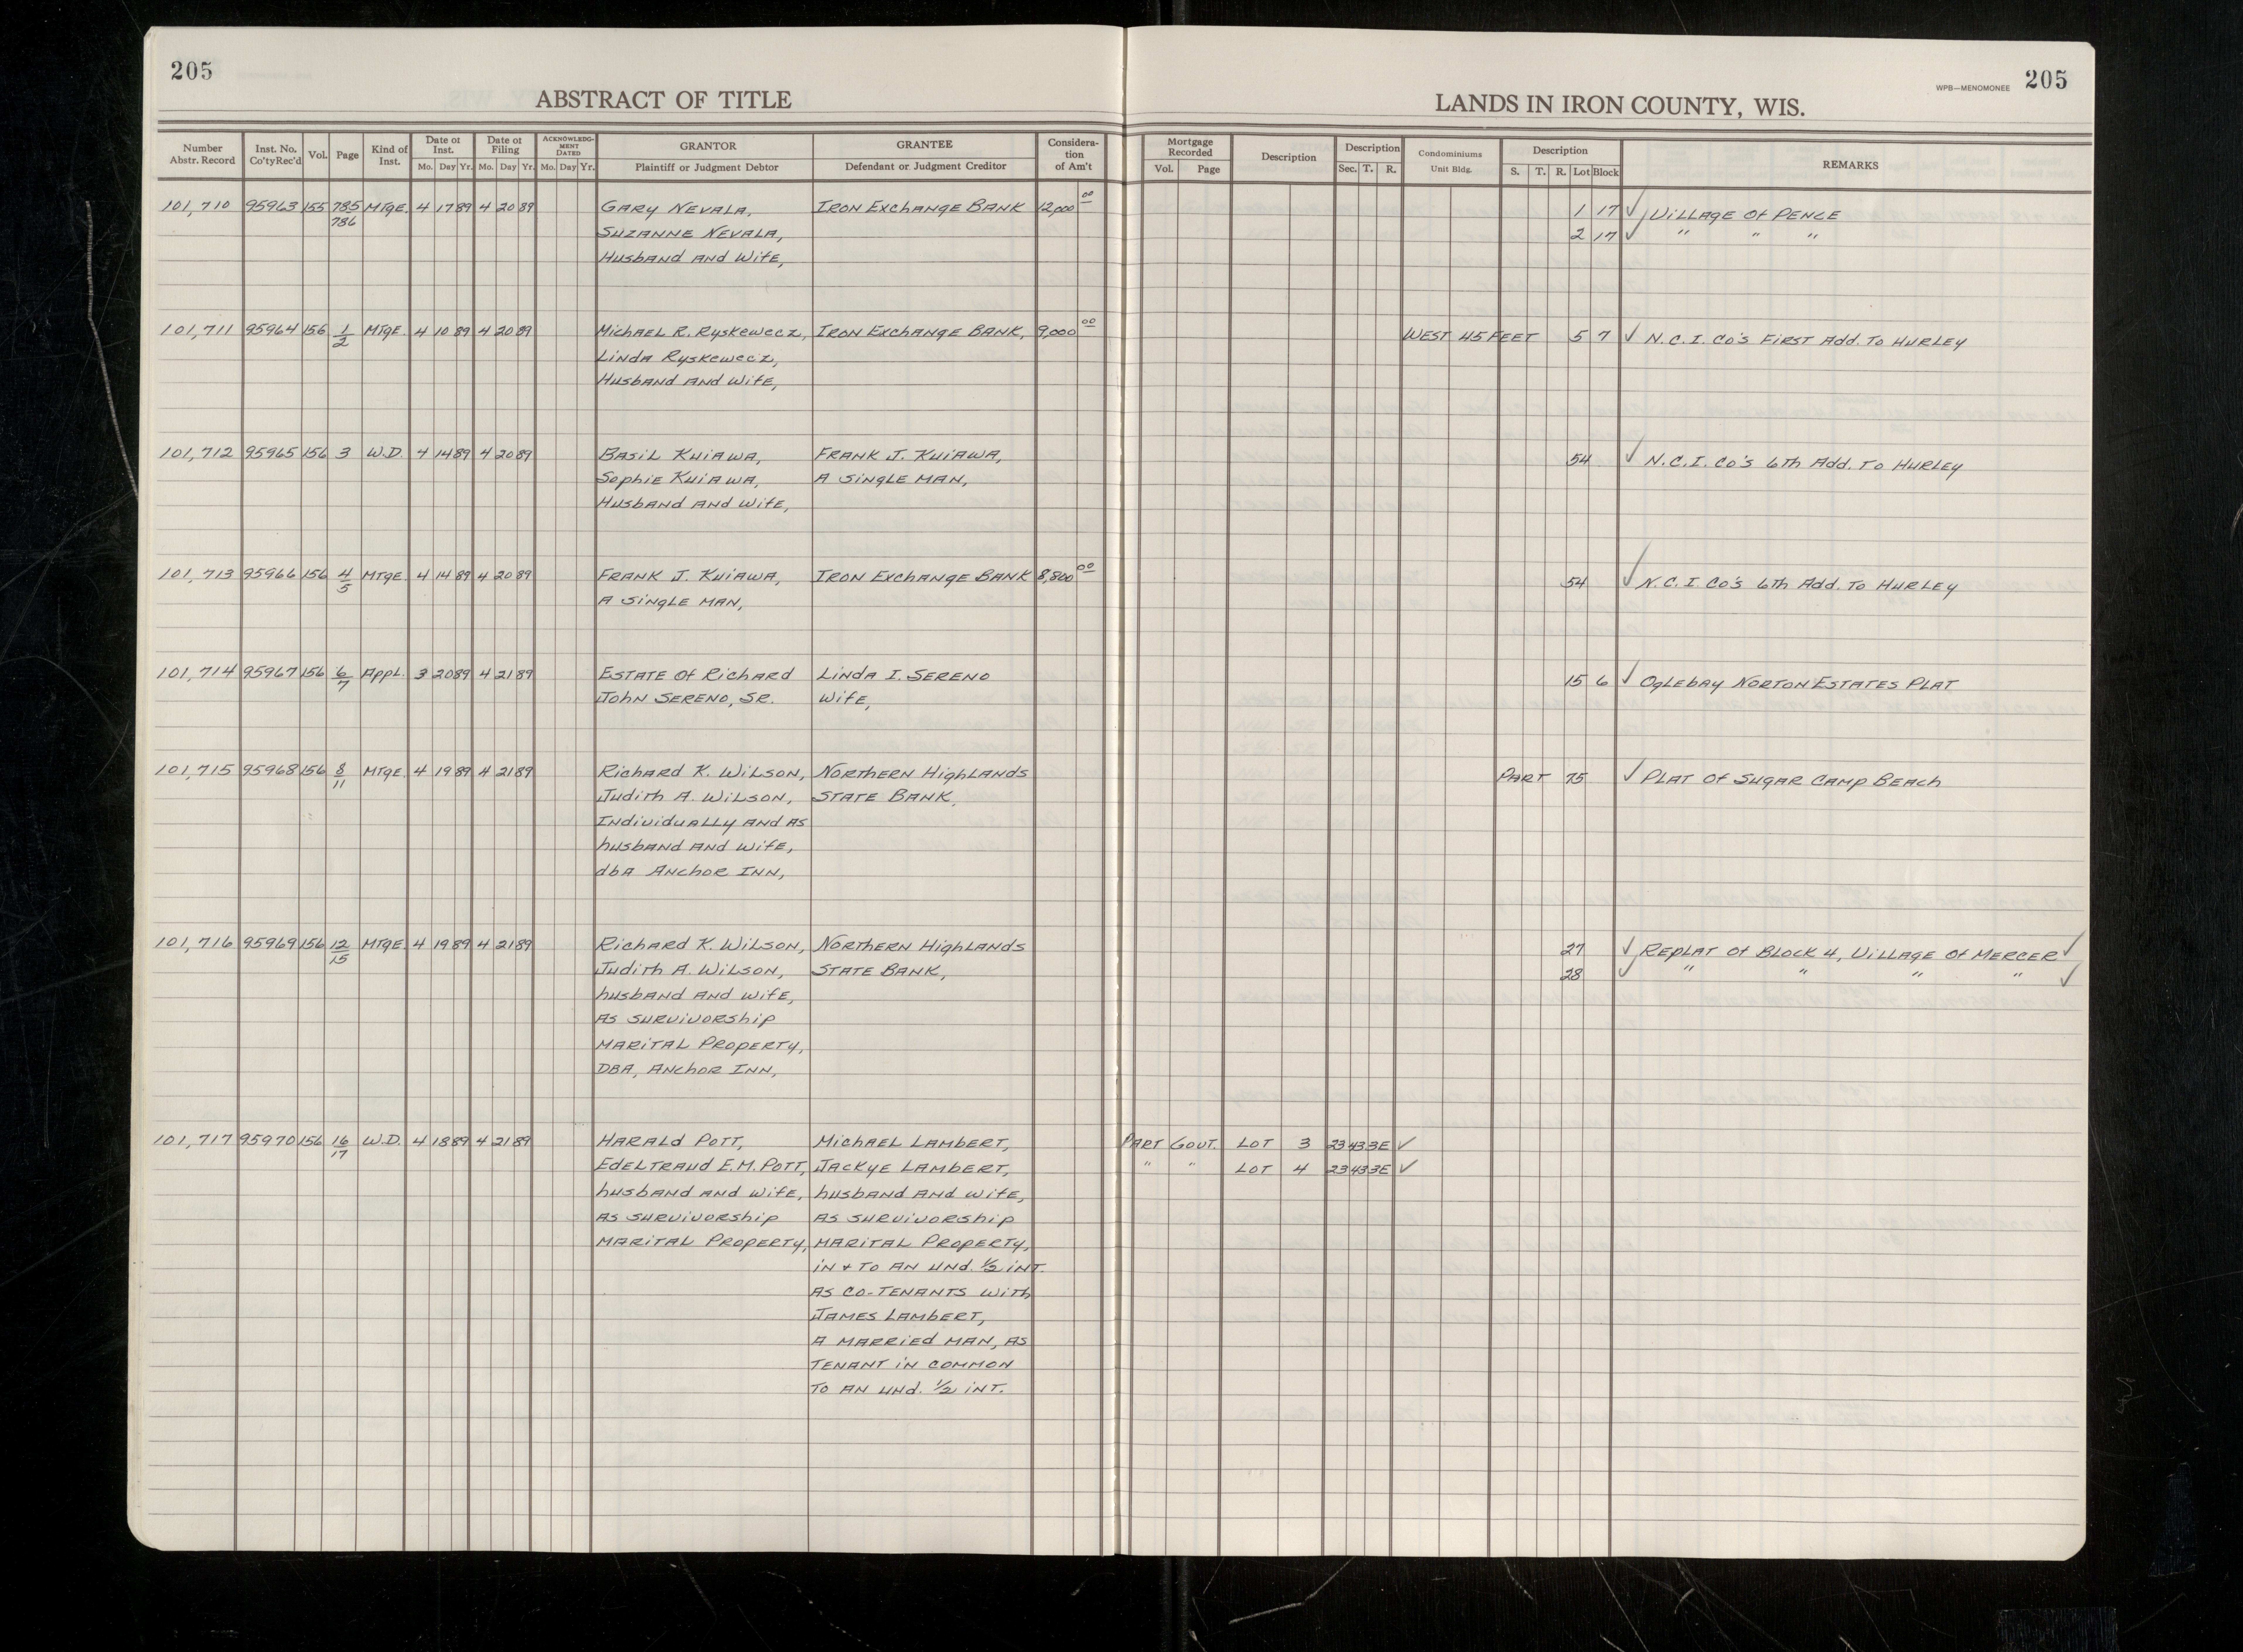 205
ABSTRACT OF TITLE
LANDS IN IRON COUNTY, WIS.
WPB—MENOMONEE 205
Number Abstr. Record Inst. No. Co'tyRec'd Vol. Page Kind of Inst. Date of Inst. Mo. Day Yr. Date of Filing Mo. Day Yr. ACKNOWLEDGMENT DATED Mo. Day Yr. GRANTOR Plaintiff or Judgment Debtor GRANTEE Defendant or Judgment Creditor Consideration of Am't Mortgage Recorded Vol. Page Description Description Sec. T. R. Condominiums Unit Bldg. Description S. T. R. Lot Block REMARKS
101,710 95963 155 785 MTGE. 4 17 89 4 20 89 GARY NEVALA, IRON EXCHANGE BANK 12,000 00 1 17 ✓ VILLAGE OF PENCE
786 SUZANNE NEVALA, 2 17 ✓ " " "
HUSBAND AND WIFE,
101,711 95964 156 1/2 MTGE. 4 10 89 4 20 89 MICHAEL R. RYSKEWECZ, IRON EXCHANGE BANK, 9,000 00 WEST 45 FEET 5 7 ✓ N.C.I. CO'S FIRST ADD. TO HURLEY
LINDA RYSKEWECZ,
HUSBAND AND WIFE,
101,712 95965 156 3 W.D. 4 14 89 4 20 89 BASIL KUIAWA, FRANK J. KUIAWA, 54 ✓ N.C.I. CO'S 6th ADD. TO HURLEY
SOPHIE KUIAWA, A SINGLE MAN,
HUSBAND AND WIFE,
101,713 95966 156 4/5 MTGE. 4 14 89 4 20 89 FRANK J. KUIAWA, IRON EXCHANGE BANK 8,800 00 54 ✓ N.C.I. CO'S 6th ADD. TO HURLEY
A SINGLE MAN,
101,714 95967 156 6/7 APPL. 3 20 89 4 21 89 ESTATE OF RICHARD LINDA I. SERENO 15 6 ✓ OGLEBAY NORTON ESTATES PLAT
JOHN SERENO, SR. WIFE,
101,715 95968 156 8/11 MTGE. 4 19 89 4 21 89 RICHARD K. WILSON, NORTHERN HIGHLANDS PART 75 ✓ PLAT OF SUGAR CAMP BEACH
JUDITH A. WILSON, STATE BANK,
INDIVIDUALLY AND AS
husband AND WIFE,
dbA ANCHOR INN,
101,716 95969 156 12/15 MTGE. 4 19 89 4 21 89 RICHARD K. WILSON, NORTHERN HIGHLANDS 27 ✓ REPLAT OF BLOCK 4, VILLAGE OF MERCER ✓
JUDITH A. WILSON, STATE BANK, 28 ✓ " " " " ✓
husband AND WIFE,
AS SURVIVORSHIP
MARITAL PROPERTY,
DBA, ANCHOR INN,
101,717 95970 156 16/17 W.D. 4 18 89 4 21 89 HARALD POTT, MICHAEL LAMBERT, PART GOVT. LOT 3 23 43 3E ✓
EDELTRAUD E.M. POTT, JACKYE LAMBERT, " " LOT 4 23 43 3E ✓
husband AND WIFE, husband AND WIFE,
AS SURVIVORSHIP AS SURVIVORSHIP
MARITAL PROPERTY, MARITAL PROPERTY,
IN + TO AN UND. 1/2 INT.
AS CO-TENANTS WITH
JAMES LAMBERT,
A MARRIED MAN, AS
TENANT IN COMMON
TO AN UND. 1/2 INT.